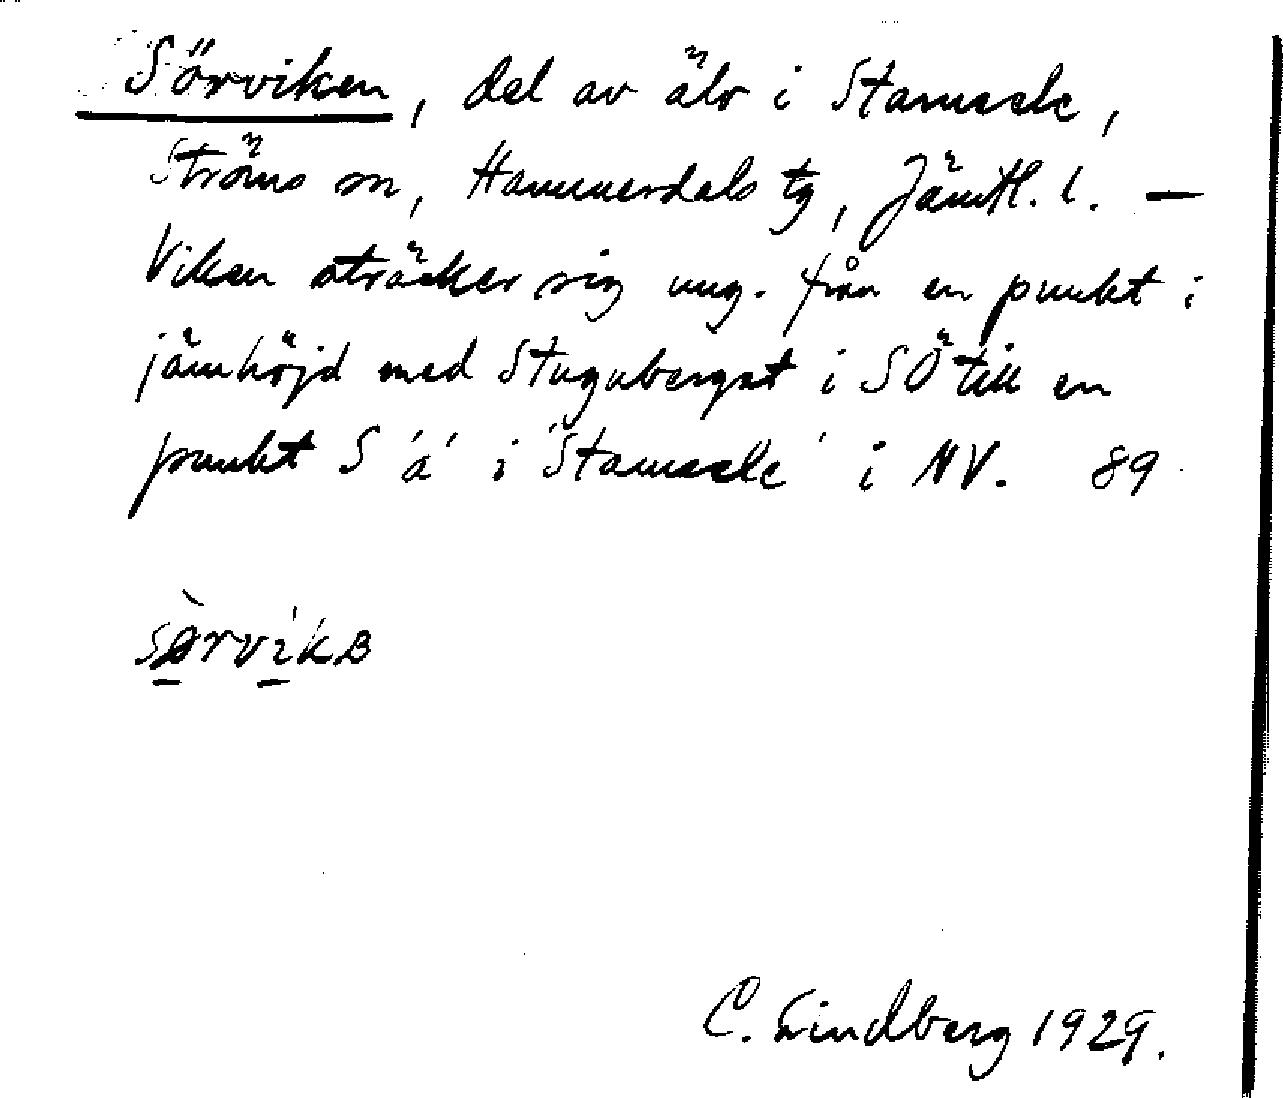 Sörviken, del av älv i Stamsele,
Ströms sn, Hammerdals tg, Jämtl. l. —
Viken sträcker sig ung. från en punkt i
jämhöjd med Stuguberget i SÖ till en
punkt S 'a' i 'Stamsele' i NV. 89
C. Lindberg 1929.